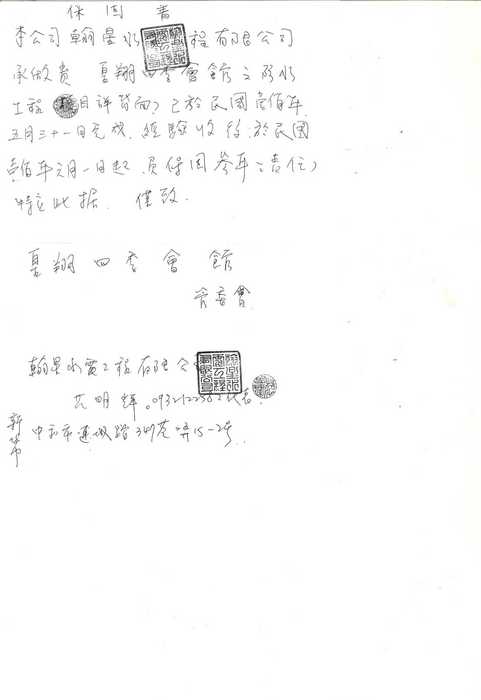 保固書
本公司翰星水電工程有限公司
承做貴 夏翔四季會館之防水
工程 項目詳背面，已於民國壹佰年
五月三十一日完成，經驗收後，於民國
壹佰年六月一日起，負保固參年之責任，
特立此据．僅致．
夏翔四季會館
管委會
翰星水電工程有限公
明輝
中和市連城路349巷 弄15-2號